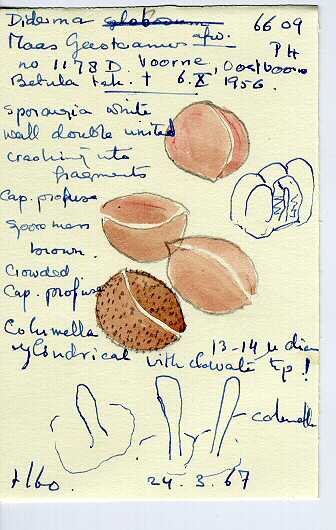 Diderma globosum 6609
Maas Geesteranus PH
no 1178D Voorne, Oostvoorne
Betula tak. + 6.X 1956.
Sporangia white
wall double united
cracking into
fragments
Cap. profuse
Spore mass
brown.
Crowded
Cap. profuse
Columella 13-14 µ diam
cylindrical with clavate tip!
columella
24.3.67